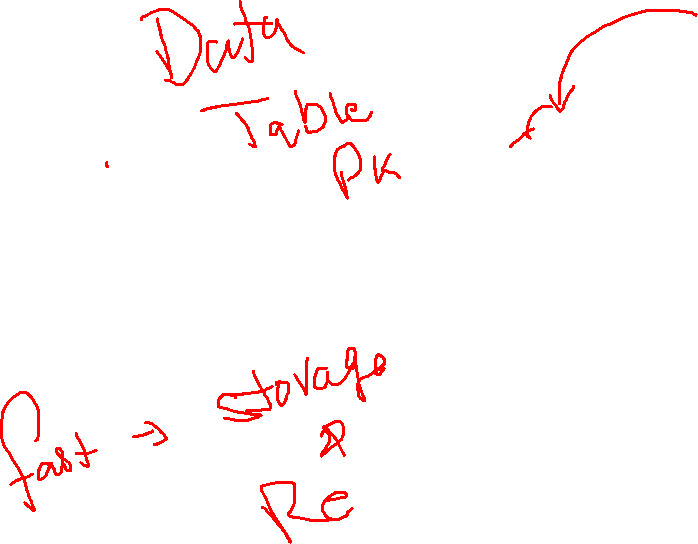 Data
Table
PK
fast → storage
&
Re